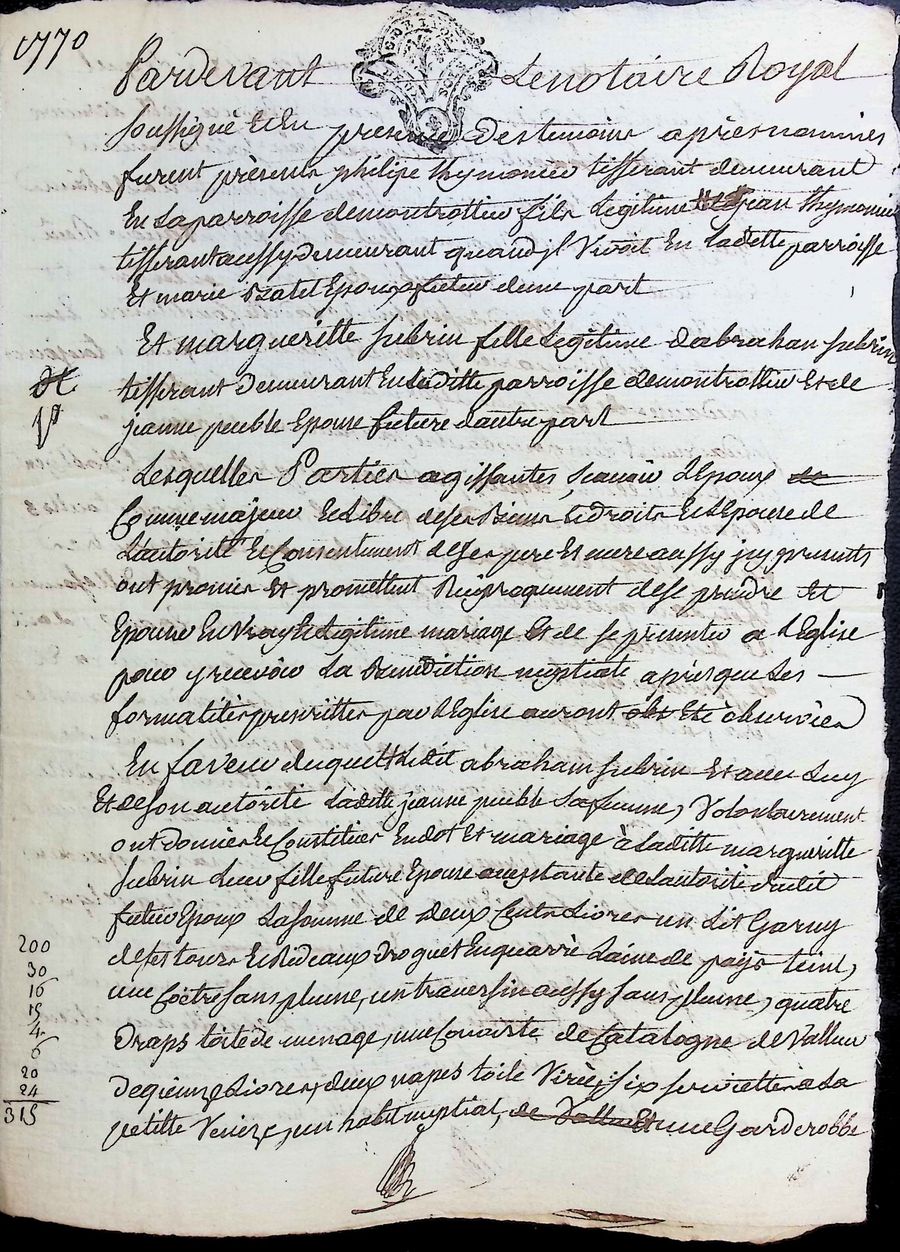 1770
Pardevant Le notaire Royal
soussigné et En presence des temoins apres nommés
furent présents philipe thymonier tisserant demeurant
En La parroisse de montrottier fils Legitime de jean thymonier
tisserant aussy demeurant quand jl Vivoit En Ladette parroisse
Et marie Epoux futeur dune part
Et margueritte subrin fille Legitime dabrahan subrin
tisserant demeurant En Laditte parroisse de montrottier Et de
jeanne peuble Epouse future dautre part
Lesquelles Parties agissantes, scavoir LEpoux de
Comme majeur et Libre de ses Biens et droits Et LEpouse de
Lautorité Et Consentement de ses pere Et mere aussy jcy presents
ont promis Et promettent Reciproquement de se prendre Et
Epouser En Vray et Legitime mariage Et de se presenter a LEglise
pour y recevoir La Benediction nuptiale après que Les
formalités prescrittes par LEglise auront obs Eté observées
En faveur duquel Ledit abraham subrin Et avec Luy
Et de son autorité Laditte jeanne peuble sa femme, Volontairement
ont donnés Et Constitués En dot Et mariage à Laditte margueritte
subrin Leur fille future Epouse acceptante de Lautorité dudit
futeur Epoux La somme de deux Cents Livres un Lit Garny
de ses tours Et Rideaux droguet En quarré Laine de pays teint,
une Coêtre sans plume, un traversin aussy sans plume, quatre
Draps toile de menage, une Couverte de Catalogne de Valleur
de quinze Livres, deux napes toile Virée, six serviettes a La
petitte Venize, un habit nuptial, de Valleur Et une Garderobbe
200
30
16
15
4
6
20
24
315